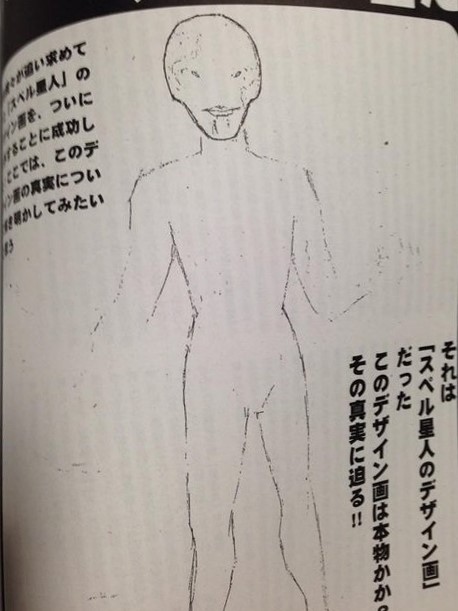 が追い求めて
「スペル星人」の
イン画を、ついに
することに成功し
ここでは、このデ
ン画の真実につい
き明かしてみたい
う
それは
「スペル星人のデザイン画」
だった
このデザイン画は本物か
その真実に迫る!!